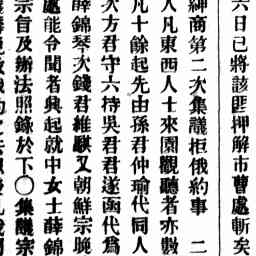 六日已將該匪押解市曹處斬矣
紳商第二次集議拒俄約事　二
人凡東西人士來園觀聽者亦數
凡十餘起先由孫君仲瑜代同人
次方君守六持吳君君遂函代爲
薛錦琴次錢君維騏又朝鮮宗晚
處能令聞者興起就中女士薛錦
宗旨及辦法照錄於下〇集議宗